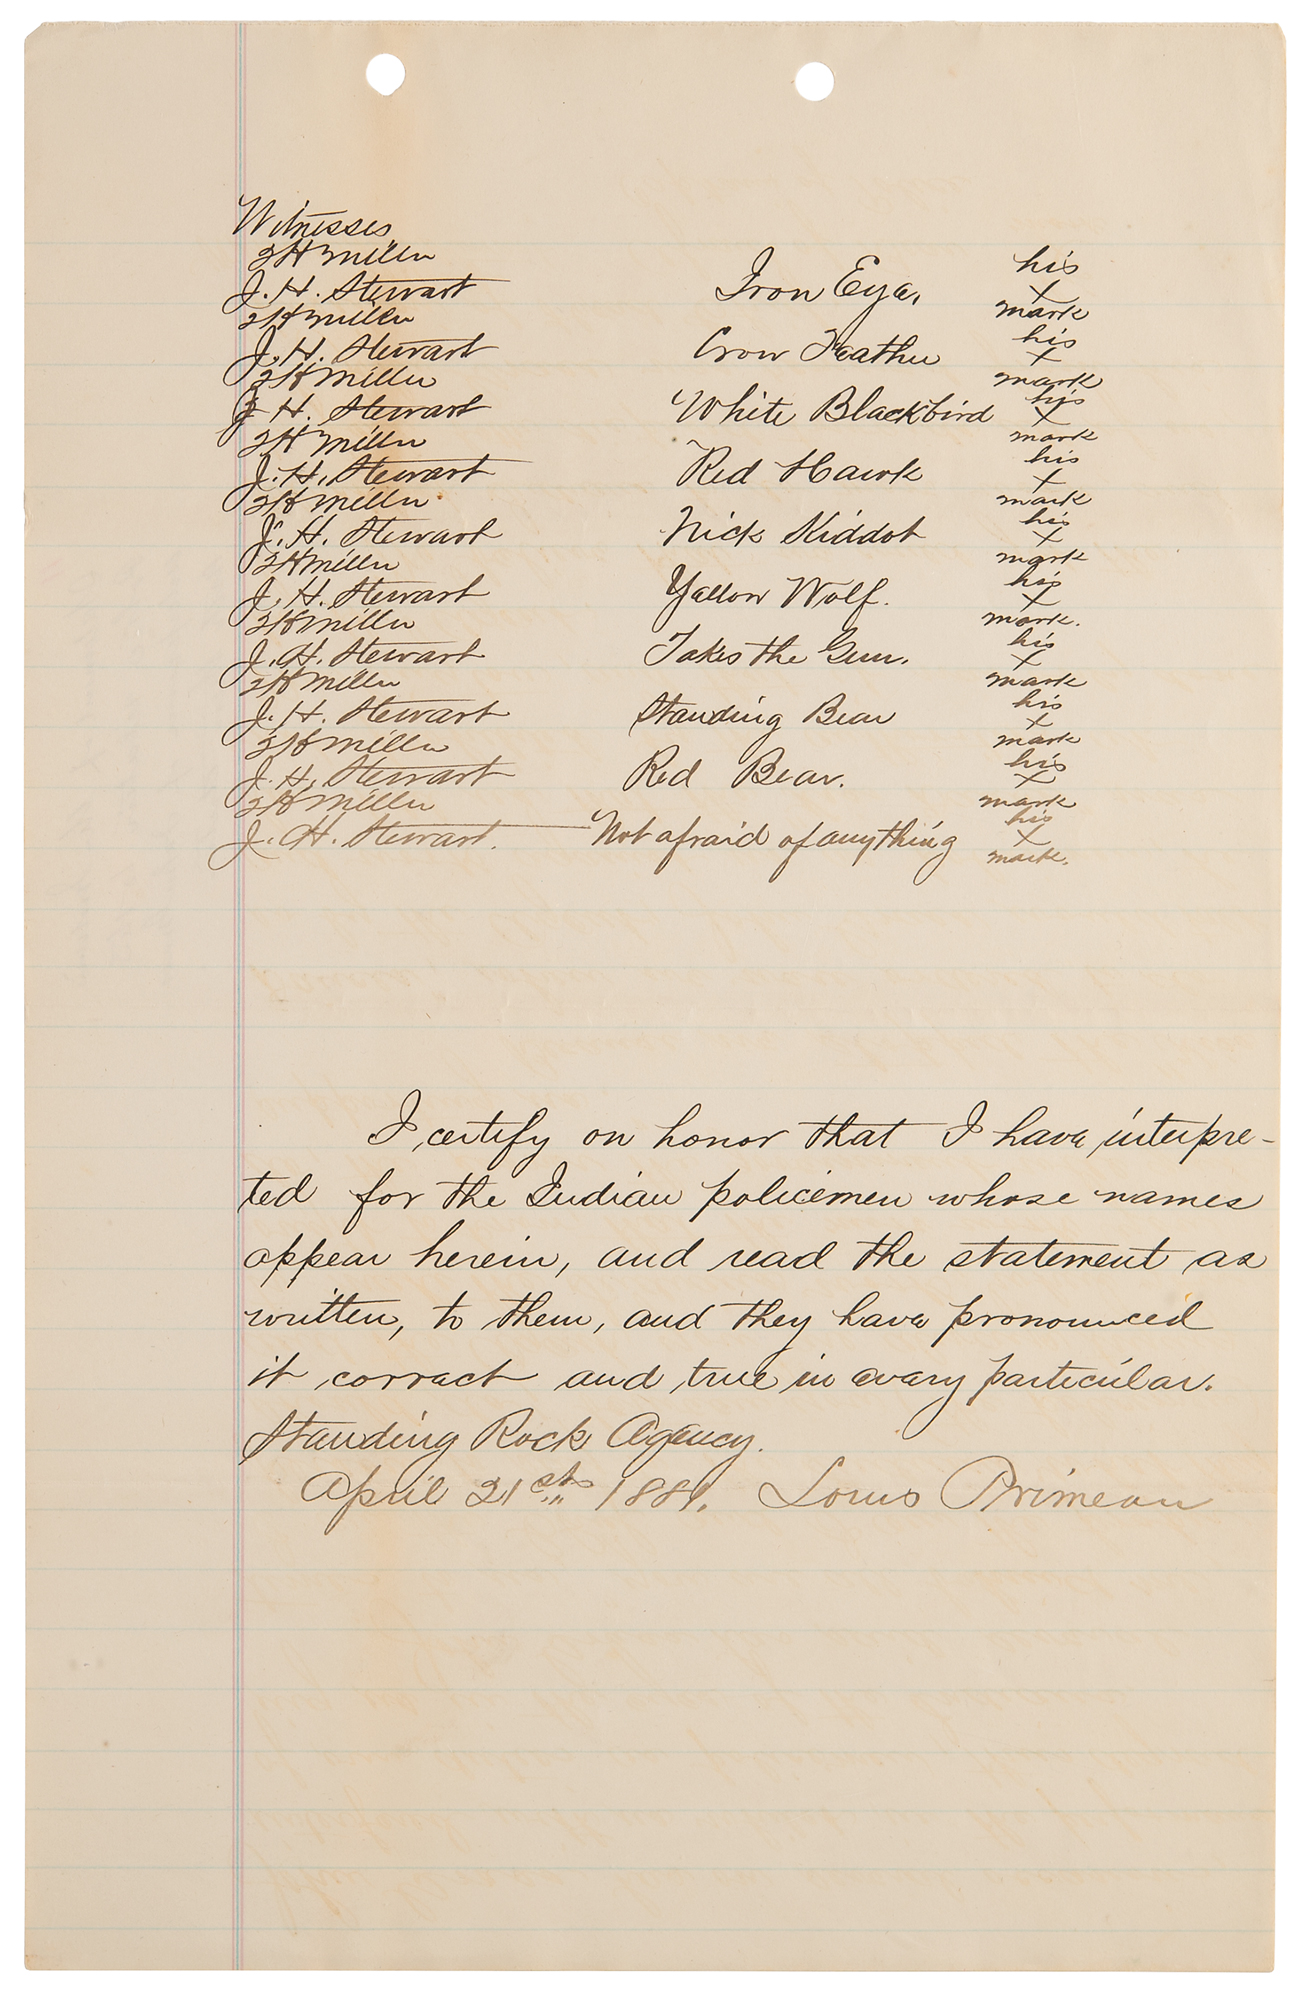 Witnesses
J H Miller his
J. H. Stewart Iron Eye. X
J H Miller mark
his
J. H. Stewart Crow Feather X
J H Miller mark
his
J. H. Stewart White Blackbird X
J H Miller mark
his
J. H. Stewart Red Hawk X
J H Miller mark
his
J. H. Stewart Nick Kiddot X
J H Miller mark
his
J. H. Stewart Yellow Wolf. X
J H Miller mark.
his
J. H. Stewart Takes the Gun. X
J H Miller mark
his
J. H. Stewart Standing Bear X
J H Miller mark
his
J. H. Stewart Red Bear. X
J H Miller mark
his
J. H. Stewart. Not afraid of anything X
mark.
I certify on honor that I have interpre-
ted for the Indian policemen whose names
appear herein, and read the statement as
written, to them, and they have pronounced
it correct and true in every particular.
Standing Rock Agency.
April 21st 1881. Louis Primeau